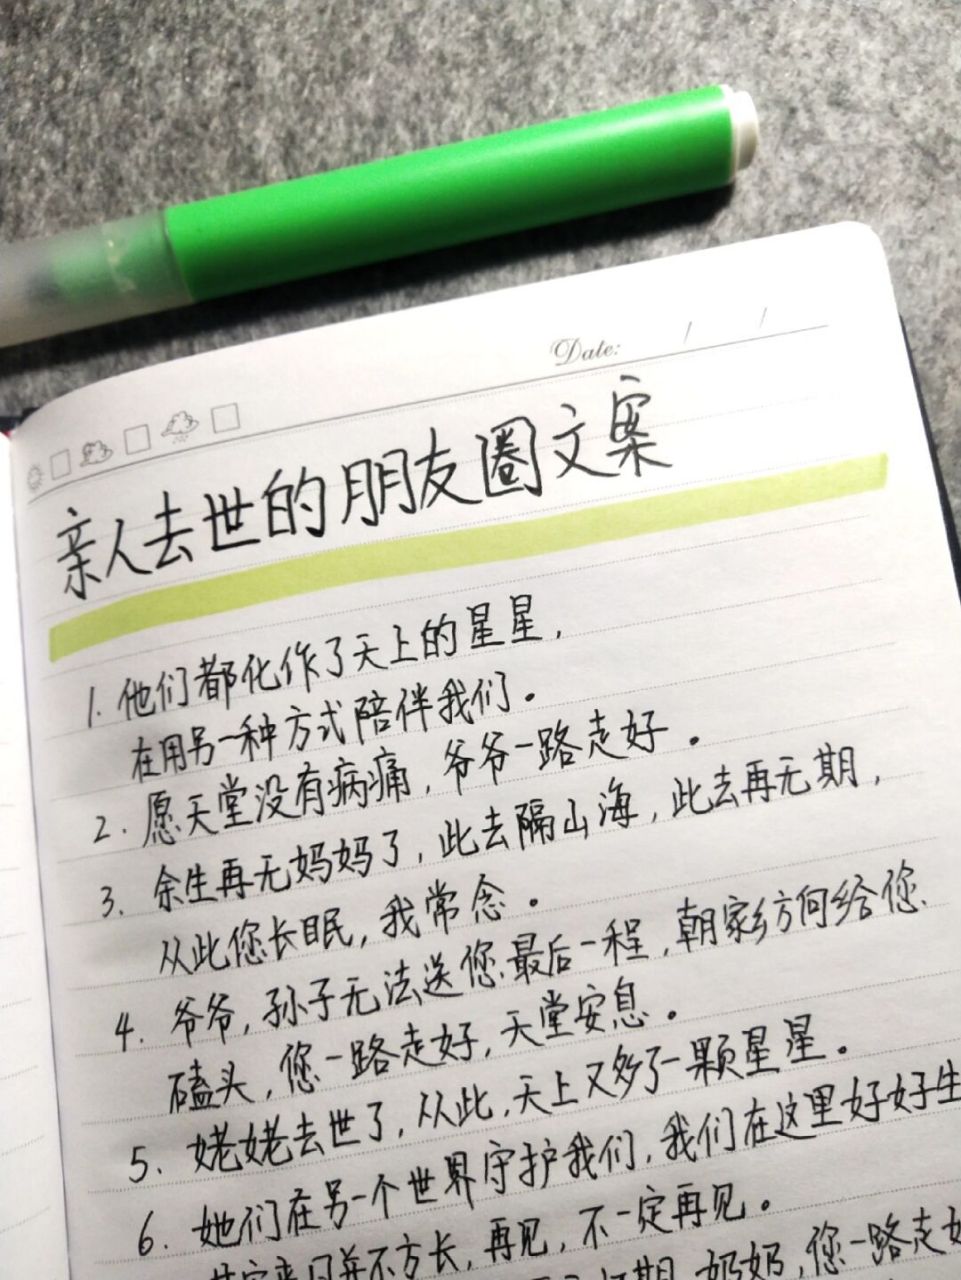 Date: / /
亲人去世的朋友圈文案
1. 他们都化作了天上的星星，
在用另一种方式陪伴我们。
2. 愿天堂没有病痛，爷爷一路走好。
3. 余生再无妈妈了，此去隔山海，此去再无期，
从此您长眠，我常念。
4. 爷爷，孙子无法送您最后一程，朝家乡方向给您
磕头，您一路走好，天堂安息。
5. 姥姥去世了，从此，天上又多了一颗星星。
6. 她们在另一个世界守护我们，我们在这里好好生
其实来日并不方长，再见，不一定再见。
期，奶奶，您一路走好